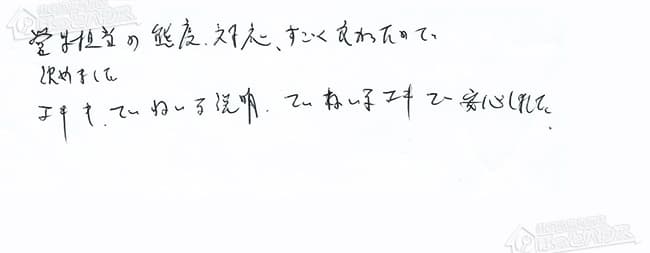 営業担当の態度、対応、すごく良かったので
決めました
工事も、ていねいな説明、ていねいな工事で安心しました。